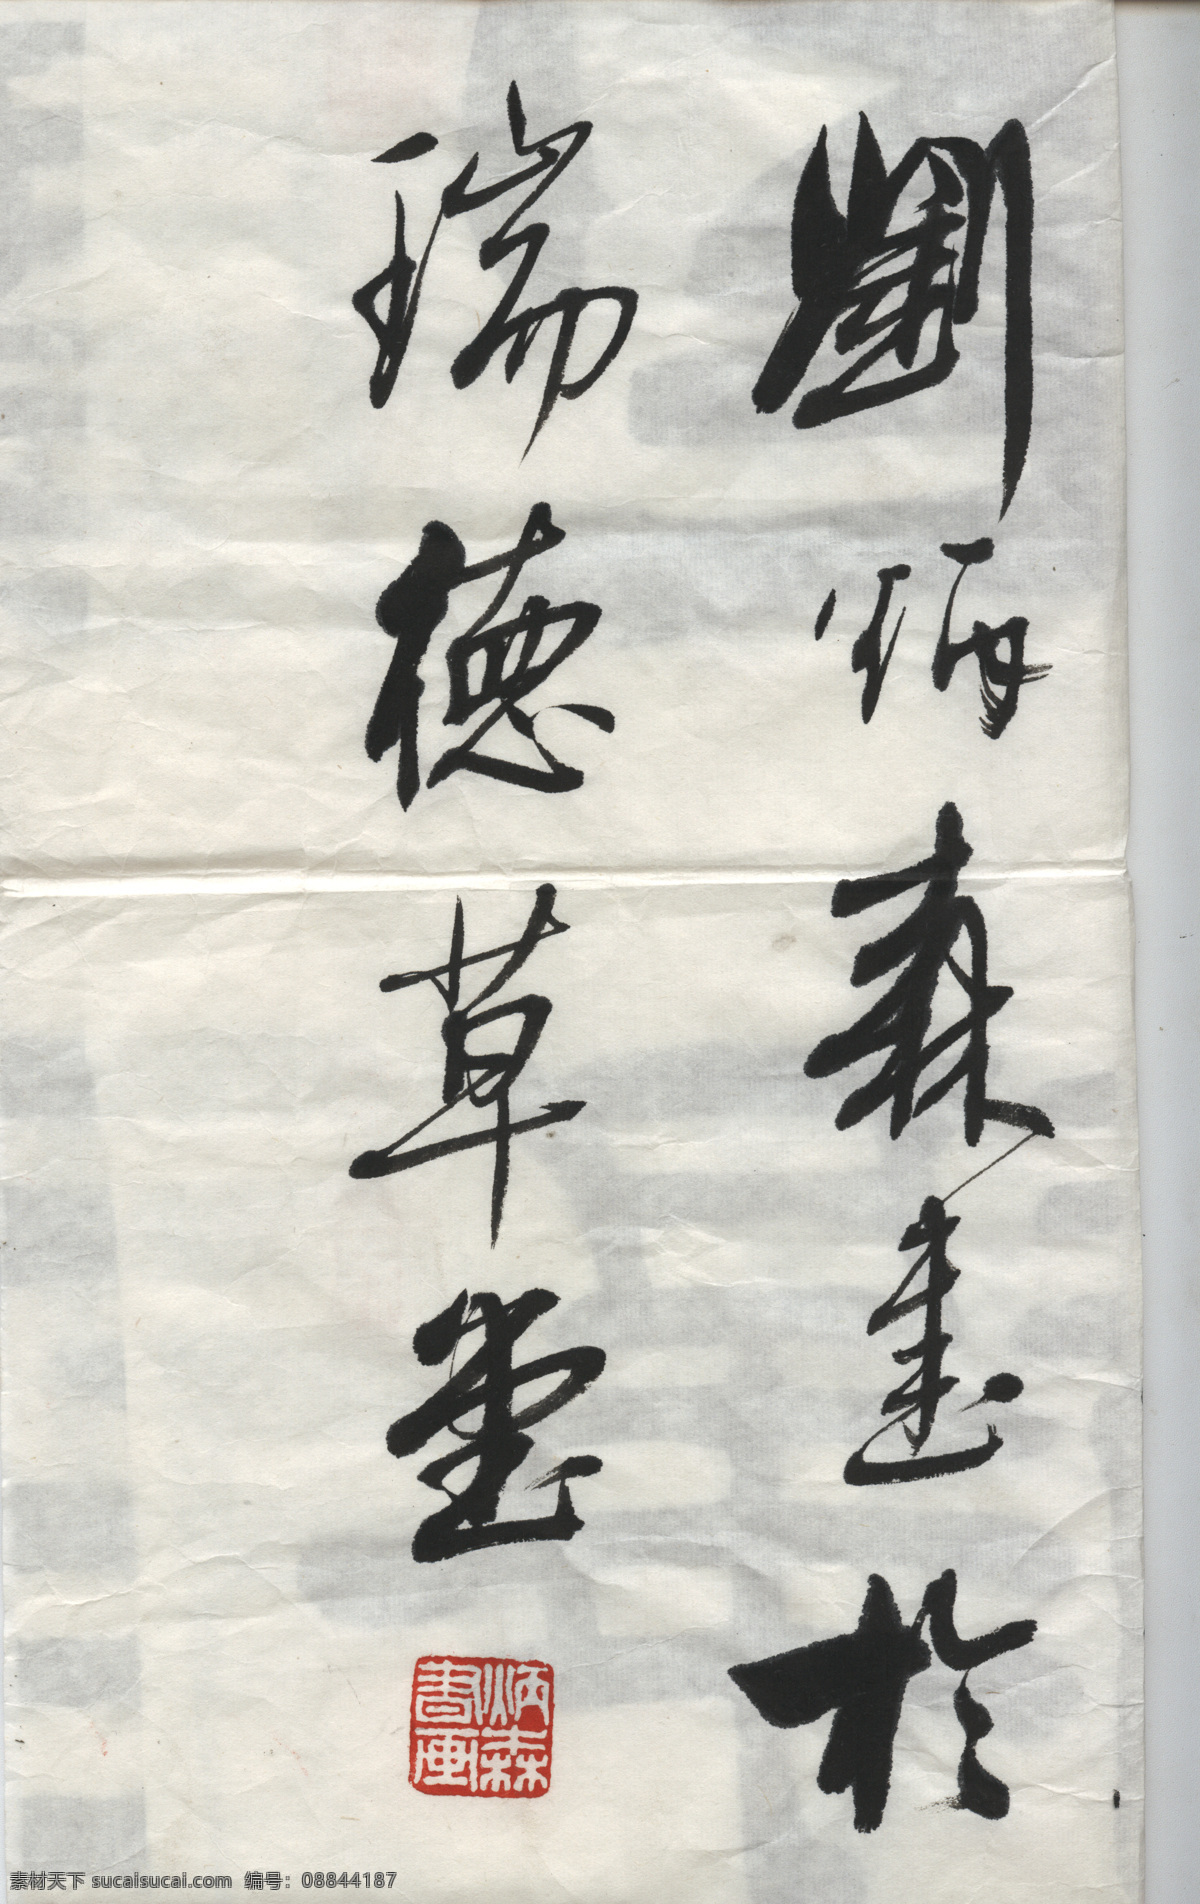 劉炳森書於
瑞德草堂
炳森
書画
素材天下 sucaisucai.com 编号：08844187